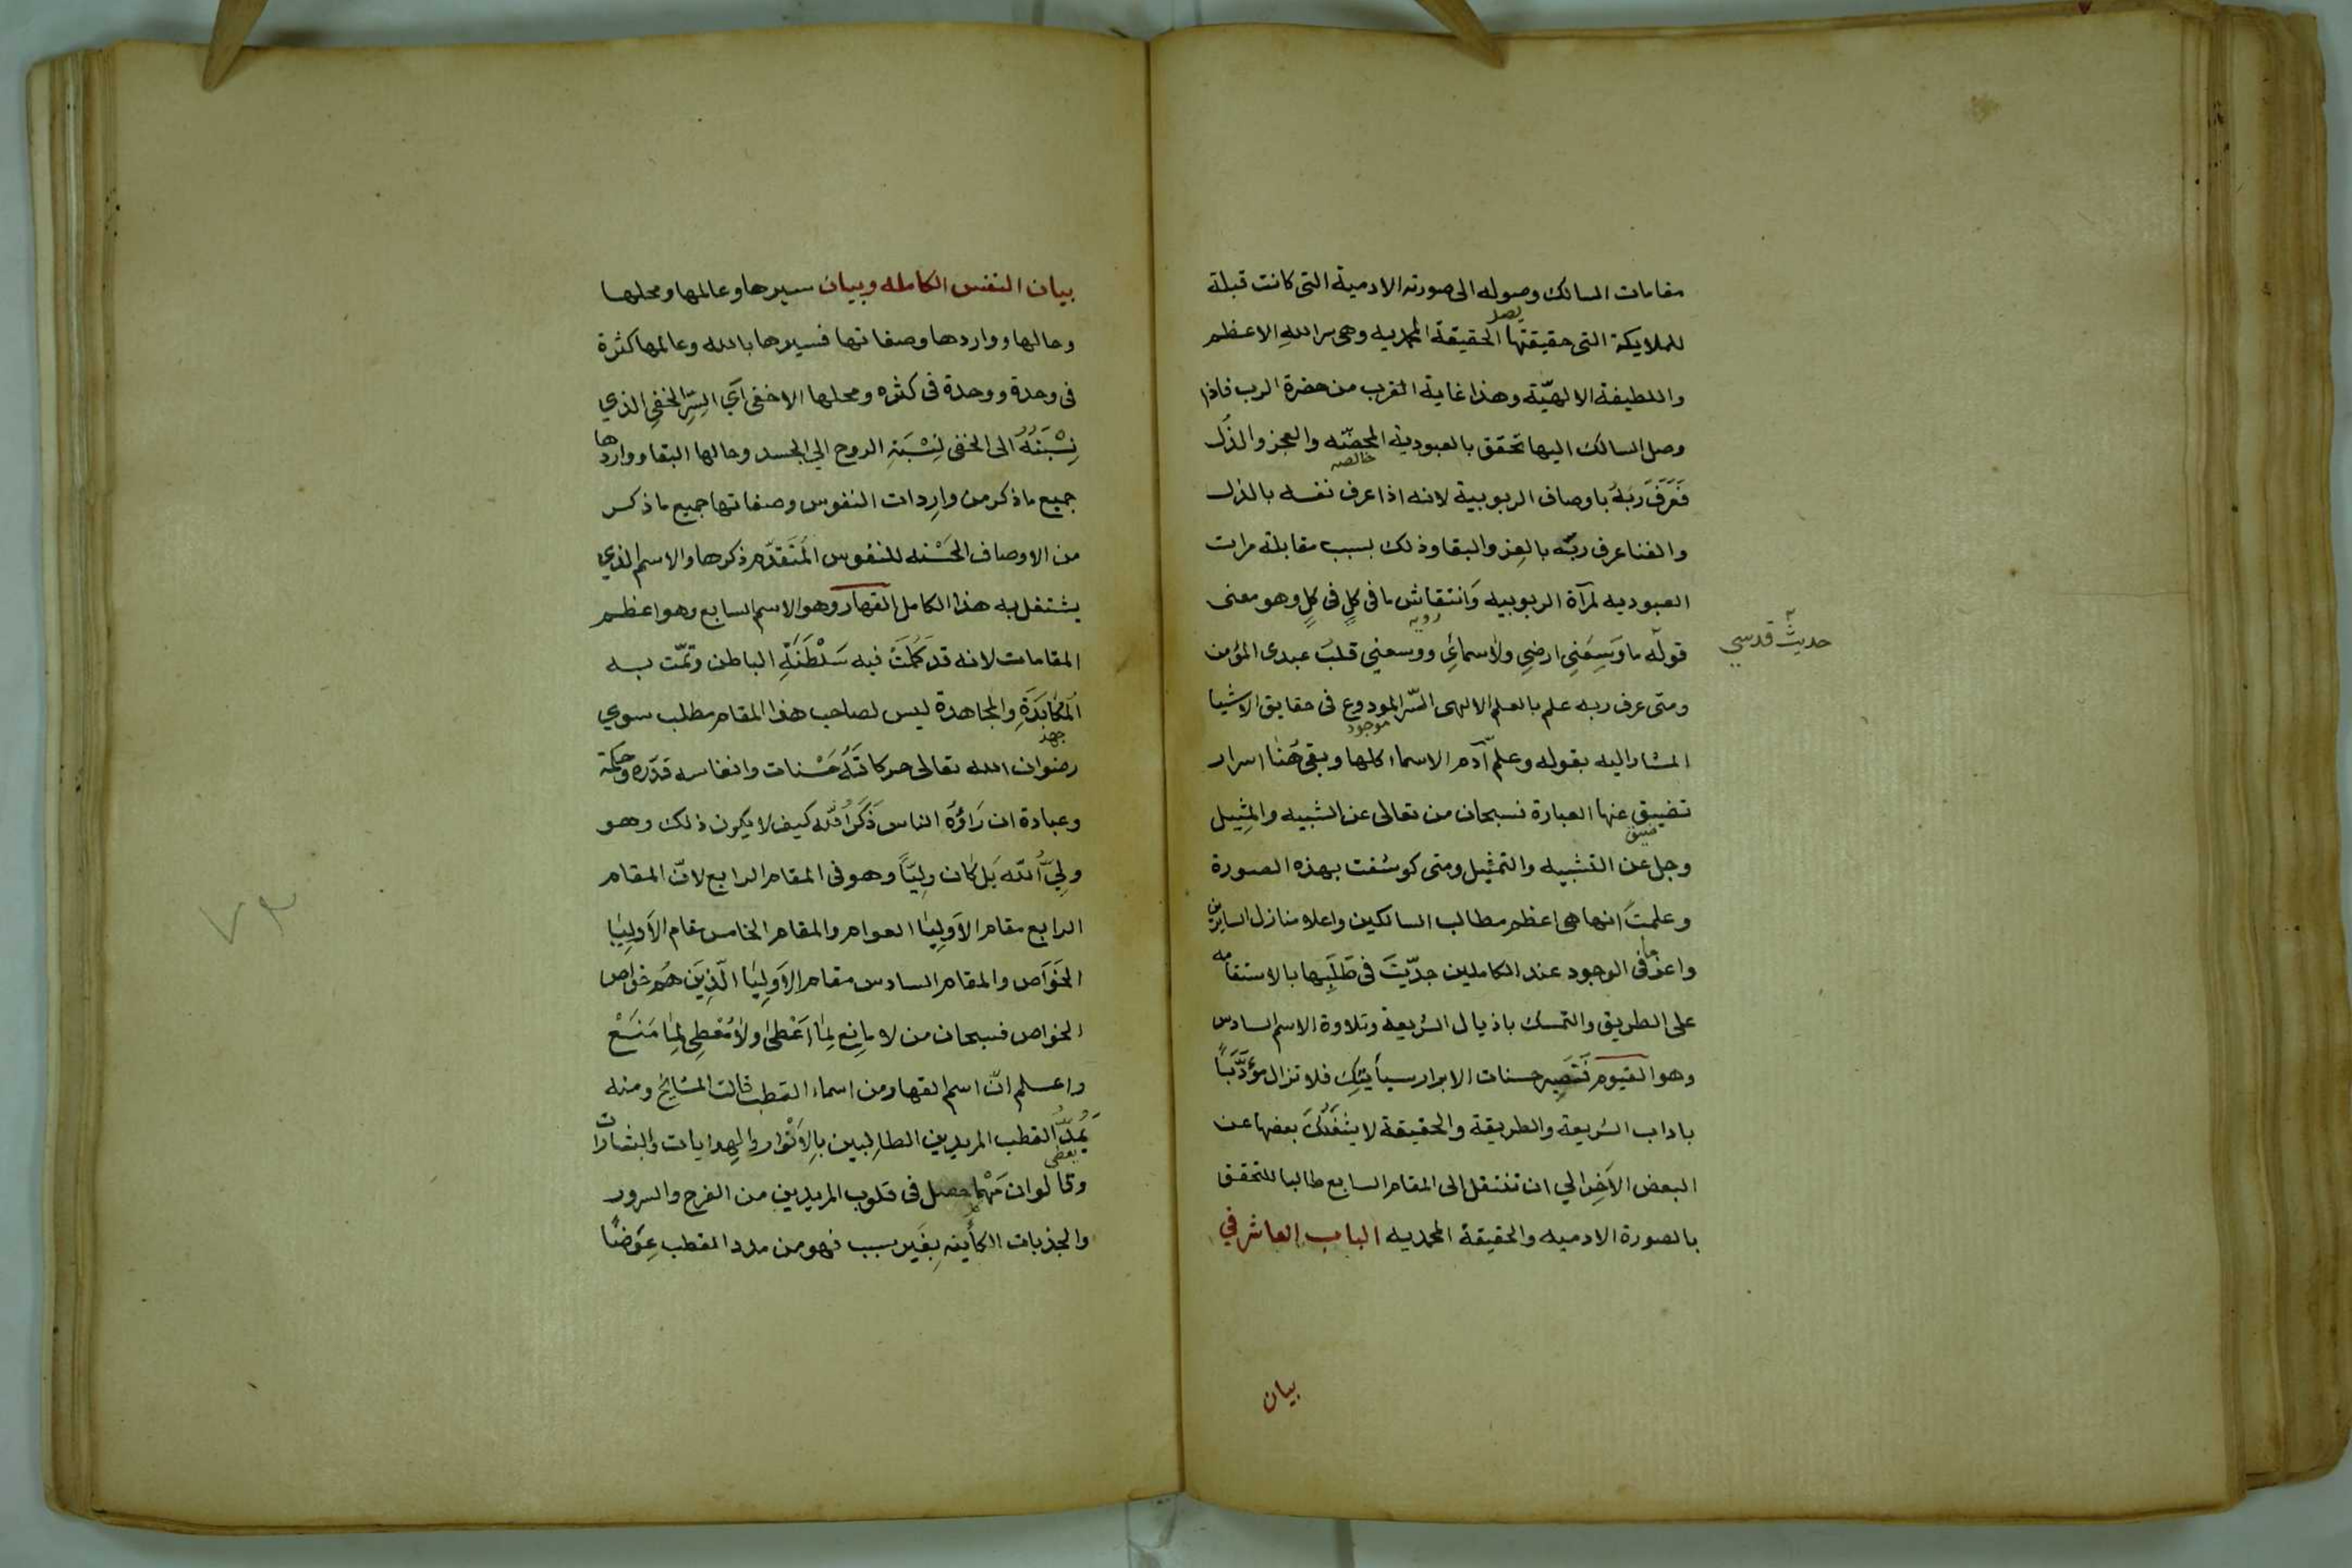 مقامات السالك وصوله الى صورته الادمية التى كانت قبلة
يصل
للملايكة التى حقيقتها الحقيقة المحمديه وهى سر اللهِ الاعظم
واللطيفة الالهيّة وهذا غاية القرب من حضرة الرب فاذا
وصل السالك اليها تحقق بالعبودية المحضّه والعجز والذُل
خالصه
فَعَرَفَ رَبَهُ باوصاف الربوبية لانه اذا عرف نفسه بالذل
والفنا عرف ربّه بالعِز والبقا وذلك بسبب مقابلة مرات
العبوديه لمرآة الربوبيه وَانتقاش ما فى كلٍ فى كلٍ وهو معنى
رويه
حديث قدسي
قوله ما وَسِعَنِي ارضِي ولاسمائِي ووسعني قلبُ عبدى المؤمن
ومتى عرف ربه علم بالعلم الالهى السّر المودوع فى حقايق الاشيا
موجود
المشار اليه بقوله وعلّم آدم الاسماء كلها وبقى هُنا اسرار
تضييق عنها العبارة نسبحان من تعالى عن الشبيه والمثِيل
ضيق
وجل عن التشبيه والتمثيل ومتى كوشفت بهذه الصورة
وعلمتَ انها هى اعظم مطالب السالكين واعلا منازل السايرين
واعزها فى الوجود عند الكاملين جدّيتَ فى طَلَبِها بالاستقامه
على الطريق والتمسك باذيال الشريعة وتلاوة الاسم السادس
وهو القيوم فَتَصِير حسنات الابرار سيأيتك فلا تزال مؤَدَّبَاً
باداب الشريعة والطريقة والحقيقة لا ينفكّ بعضها عن
البعض الآخِر الي ان تنتقل الى المقام السابع طالبا للتحقق
بالصورة الادميه والحقيقة المحمديه الباب العاشر في
بيان
بيان النفس الكامله وبيان سيرها وعالمها ومحلها
وحالها وواردها وصفاتها فسيرها بالله وعالمها كثرة
فى وحدة ووحدة فى كثره ومحلها الاخفى آي السِّرِ الخفي الذي
نِسْبَتُهُ الى الخفى نِسْبَة الروح الي الجسد وحالها البقا وواردها
جميع ما ذكر من وارِدات النفوس وصفاتها جميع ما ذكر
من الاوصاف الحَسْنه للنفوس المُتَقدّم ذكرها والاسم الذي
يشتغل به هذا الكامل القهار وهو الاسم السابع وهو اعظم
المقامات لانه قد كَمُلَتْ فيه سَلْطَنَةِ الباطن وتمّت به
المُكابَدَةِ والمجاهدة ليس لصاحب هذا المقام مطلب سوي
جهد
رضوان الله تعالى حركاتَهُ حَسْنات وانفاسه قدّره وحكمة
وعبادة ان رَاؤُه الناس ذَكَرُ الله كيف لا يكون ذلك وهو
ولِيّ الله بَل كان ولِيّاً وهو فى المقام الرابع لانّ المقام
الرابع مقام الاَولِيا العوام والمقام الخامس مقام الاَولِيا
الخَوَاص والمقام السادس مقام الاَولِيا الّذِينَ هُم خواص
الخواص فسبحان من لا مانِع لِمَا اَعْطَى ولا مُعْطِى لِمَا مَنَعْ
واعلم انّ اسم القهار من اسماء القطب قالت المشايخ ومنه
يَمُدُّ القطب المريدين الطالِبين بِالاَنْوار والهِدايات والبشارات
يعطى
وقالوان مَهْما حصل فى قلوب المريدين من الفرح والسرور
والجذبات الكأينه بِغَير سبب فهو من مدد القطب عِوَضًا
٧٣